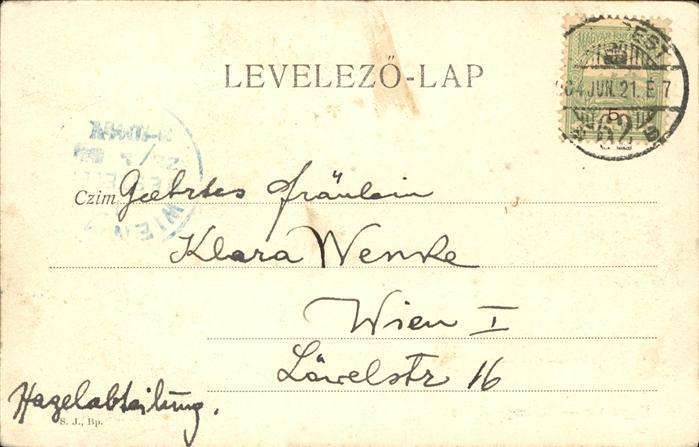 LEVELEZŐ-LAP
904 JUN. 21. E 7
62
WIEN
Czim Geehrtes Fräulein
Klara Wenke
Wien I
Löwelstr 16
Hagelabteilung.
S. J., Bp.